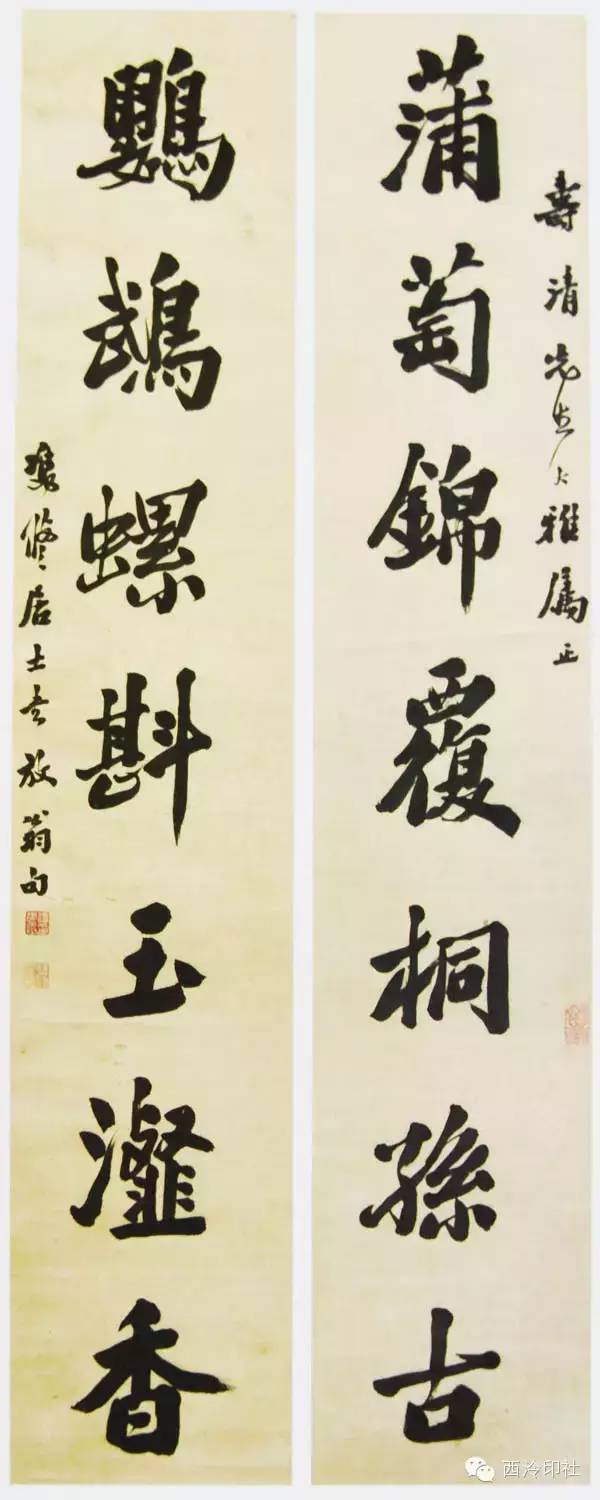 壽清先生大雅屬正
蒲萄錦覆桐孫古
鸚鵡螺斟玉瀣香
居士書放翁句
西泠印社